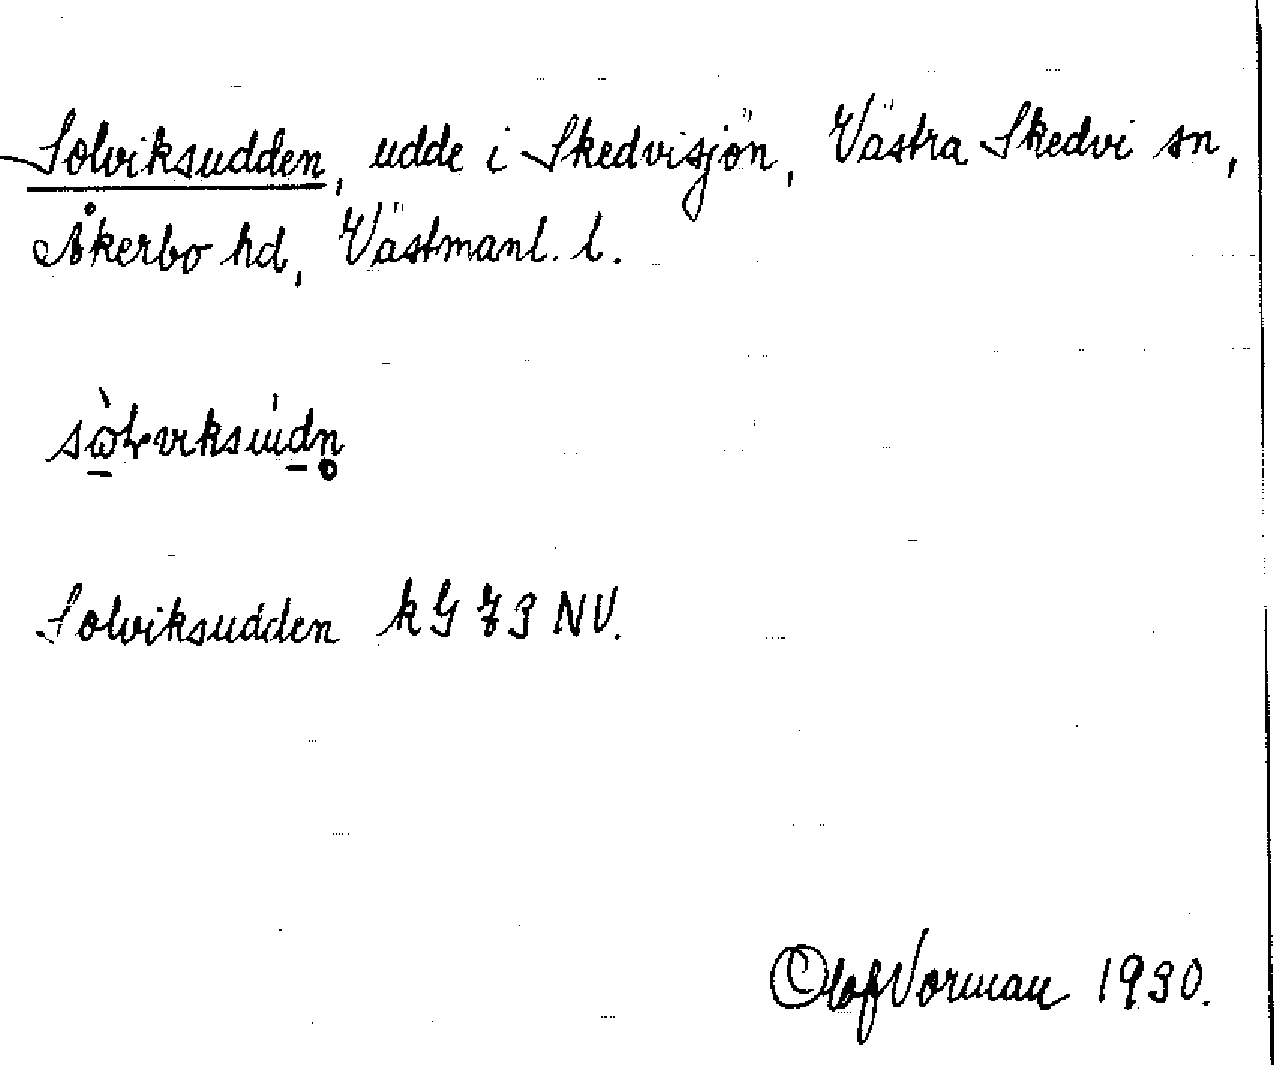 Solviksudden, udde i Skedvisjön, Västra Skedvi sn,
Åkerbo hd, Västmanl. l.
Solviksudden kG 73 NV.
Olof Norman 1930.